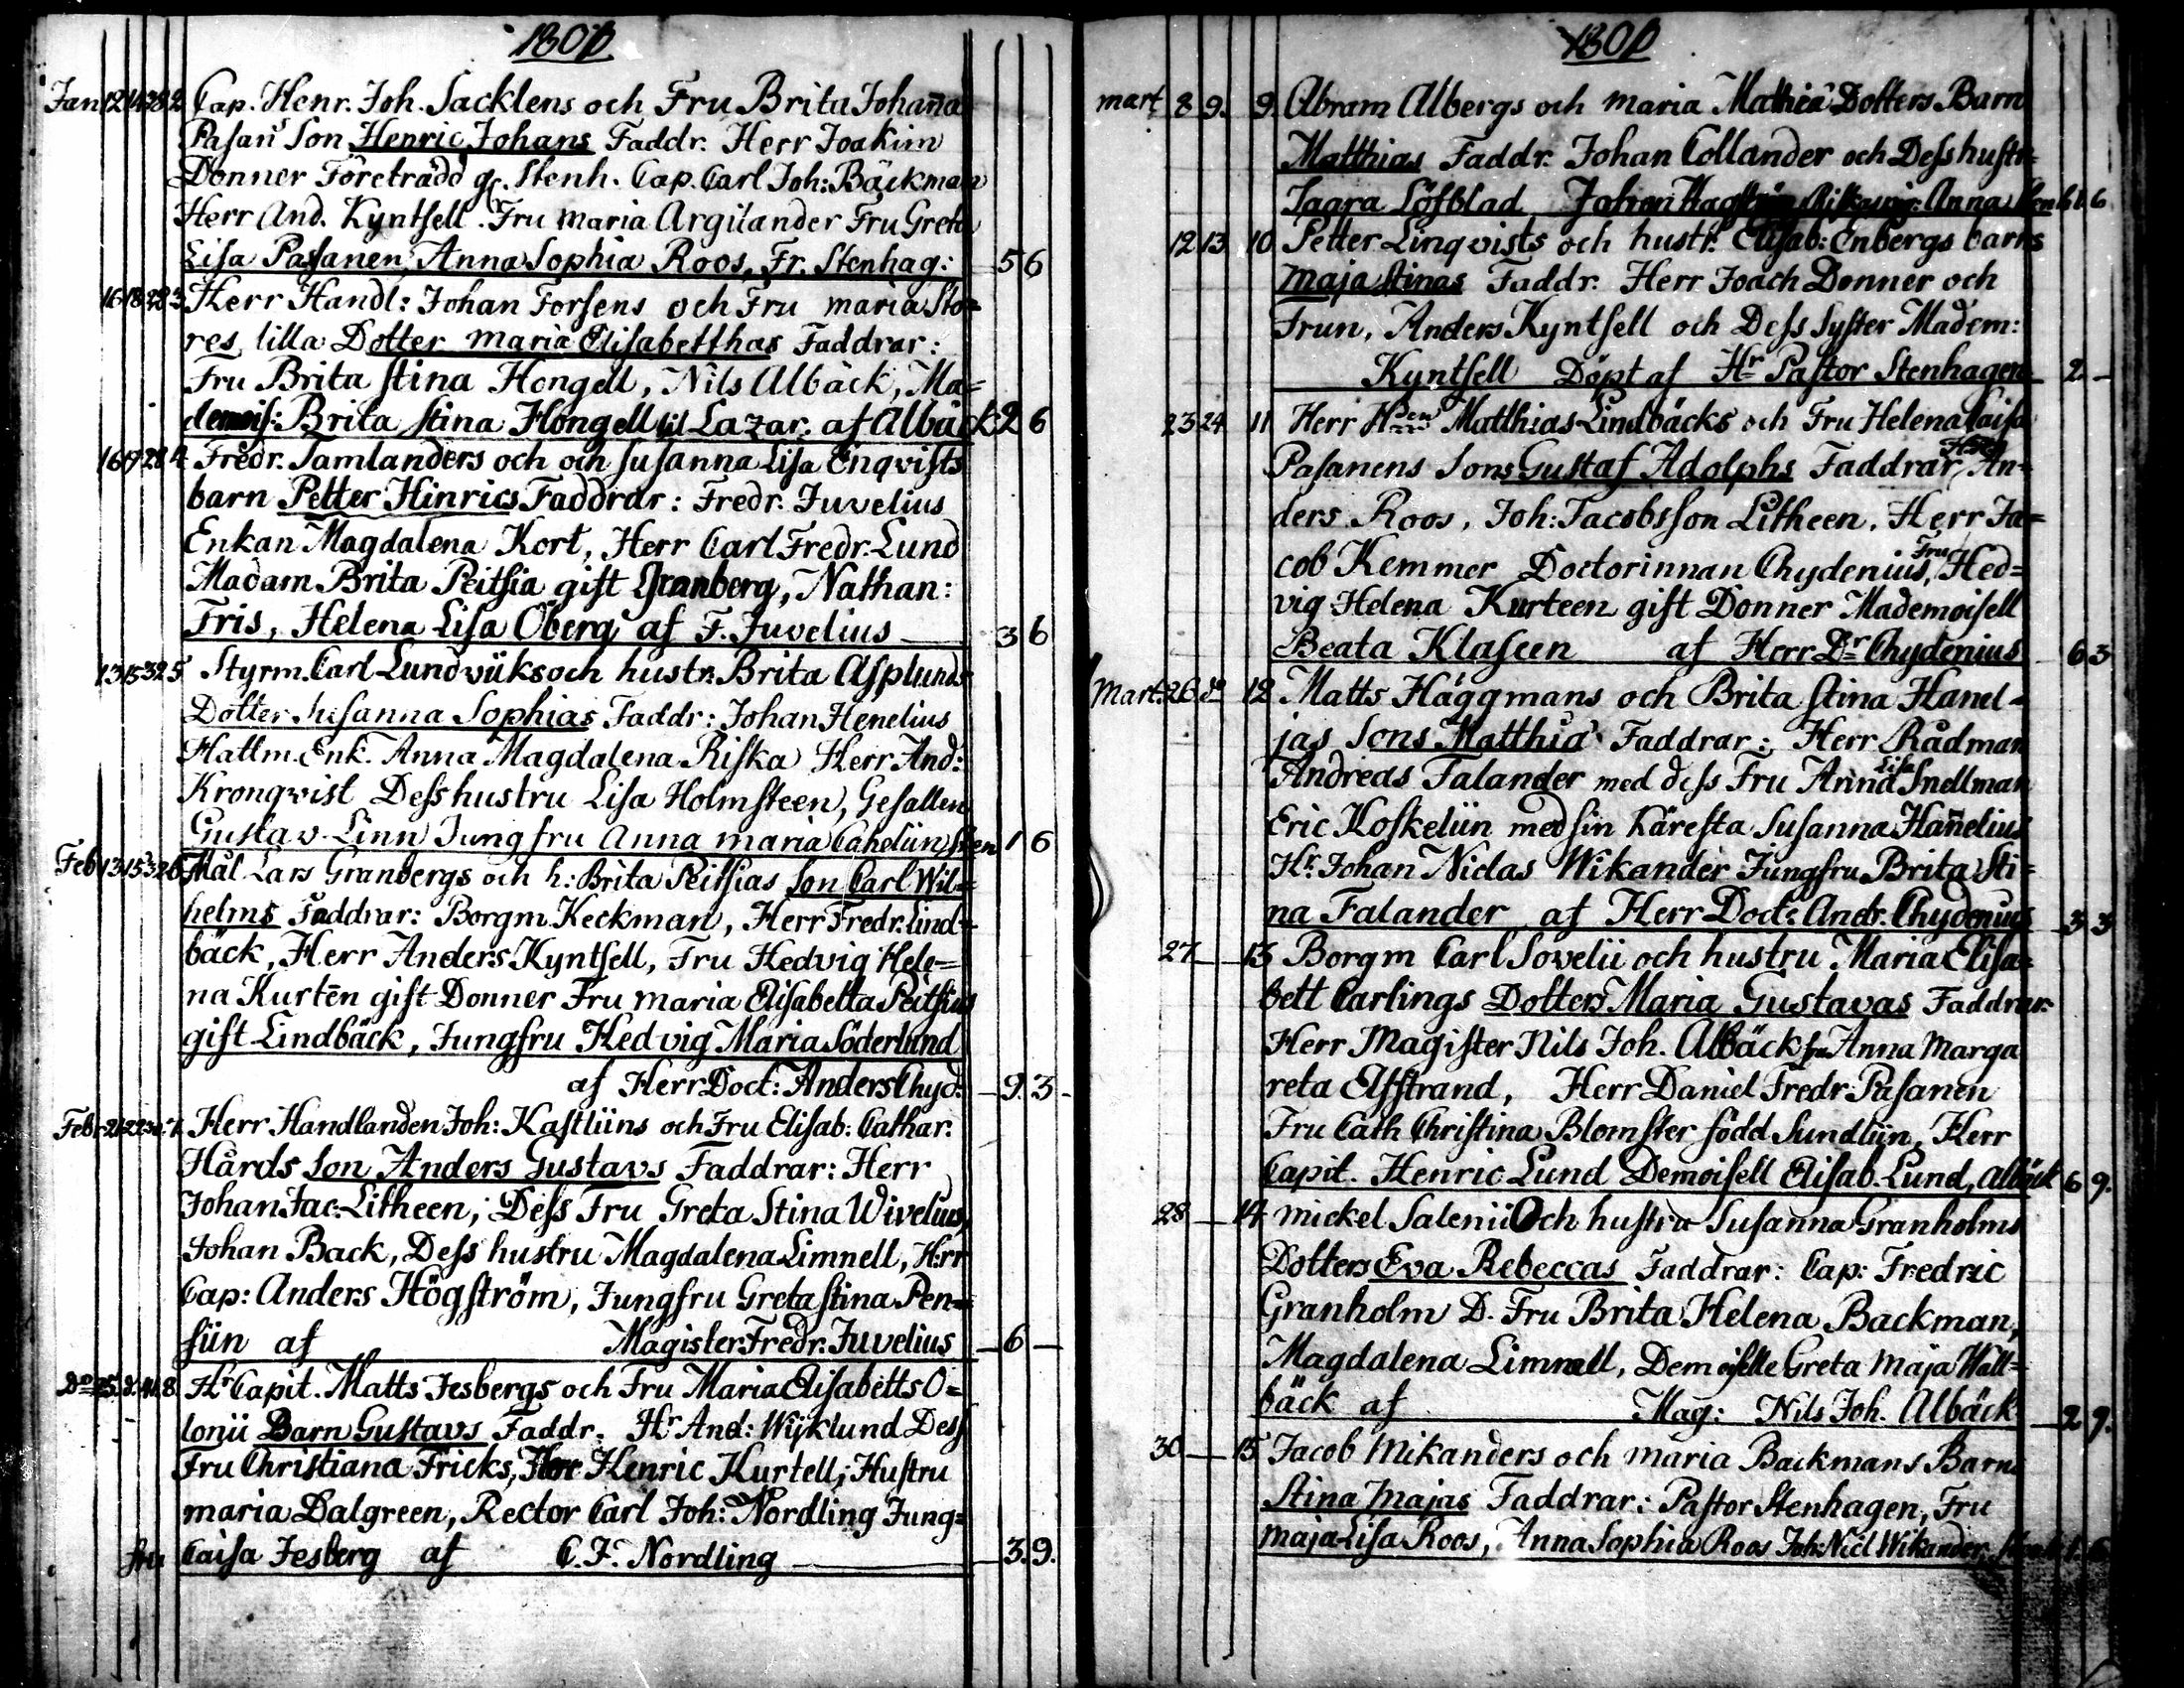 1801
Jan 12 14 38 2 Cap. Henr. Joh. Sacklens och Fru Brita Johaña
Pasanˢ Son Henric Johans Faddr. Herr Joakim
Donner Företrädd gr. Stenh. Cap. Carl Joh: Bäckman
Herr And. Kyntsell. Fru Maria Argilander Fru Greta
Lisa Pasanen, Anna Sophia Roos, Fr. Stenhag: 5 6
16 18 28 3 Herr Handl: Johan Forsens och Fru maria Sto=
res lilla Dotter maria Elisabetthas Faddrar:
Fru Brita Stina Hongell, Nils Albäck, Ma=
demois: Brita Stina Hongell til Lazar. af Albäck 2 6
16 17 28 4 Fredr. Tamlanders och och Susanna Lisa Enqvists
barn Petter Hinrics Faddrar: Fredr. Juvelius
Enkan Magdalena Kort, Herr Carl Fredr. Lund
Madam Brita Peitsia gift Granberg, Nathan:
Fris, Helena Lisa Öberg af F. Juvelius 3 6
13 15 32 5 Styrm. Carl Lundvüks och hustr. Brita Asplunds
Dotter Susanna Sophias Faddr: Johan Henelius
Hattm. Enk. Anna Magdalena Riska Herr And:
Kronqvist Dess hustru Lisa Holmsteen, Gesallen
Gustav Linn Jungfru Anna maria Cahelün, Sten 1 6
Feb 13 15 32 6 Mål. Lars Granbergs och h: Brita Peitsias Son Carl Wil=
helms Faddrar: Borgm. Keckman, Herr Fredr. Lind=
bäck, Herr Anders Kyntsell, Fru Hedvig Hele=
na Kurtēn gift Donner Fru maria Elisabetta Peitsius
gift Lindbäck, Jungfru Hedvig Maria Söderlund
af Herr Doct: Anders Chyd: 9. 3
Feb: 21 22 30. 7. Herr Handlanden Joh: Kastlüns och Fru Elisab: Cathar:
Hårds Son Anders Gustavs Faddrar: Herr
Johan Jac: Litheen; Dess Fru Greta Stina Wivelius,
Johan Back, Dess hustru Magdalena Limnell, Herr
Cap: Anders Högström, Jungfru Greta Stina Pen=
sün af Magister Fredr. Juvelius 6 —
Do 25. d. 41. 8. Hr Capit. Matts Jesbergs och Fru Maria Elisabetts O=
lonii Barn Gustavs Faddr. Hr And: Wijklund Dess
Fru Christiana Fricks, Herr Henric Kurtell; Hustru
maria Dalgreen, Rector Carl Joh: Nordling Jung=
fru Caisa Jesberg af C. F. Nordling 3. 9.
1801
mart 8 9. 9. Abram Albergs och maria Mathiæ Dotters Barn
Matthias Faddr. Johan Collander och Dess hustr=
Saara Löfblad Johan Anna Sten 61. 6
12 13 10 Petter Linqvists och hustr. Elisab: Enbergs barns
maja Stinas Faddr. Herr Joach Donner och
Frun, Anders Kyntsell och Dess Syster Madem:
Kyntsell Döpt af Hr Pastor Stenhagen 2 -
23 24 11 Herr Matthias Lindbäcks och Fru Helena Caisa
Pasanens Sons Gustaf Adolphs Faddrar, Herr An=
ders Roos, Joh: Jacobsson Litheen, Herr Ja=
cob Kemmer Doctorinnan Chydenius, Fru Hed=
vig Helena Kurteen gift Donner Mademoisell
Beata Klaseen af Herr Dr Chydenius 6 3
Mart. 26 do 12 Matts Häggmans och Brita Stina Hanel=
jas Sons Matthiæ Faddrar: Herr Rådman
Andreas Falander med dess Fru Anna Lisa Snellman
Eric Koskelün med sin Käresta Susanna Hañelius
Hr. Johan Niclas Wikander Jungfru Brita Sti=
na Falander af Herr Doct: Andr. Chydenius 3 3
27 — 13 Borgm Carl Sovelii och hustru Maria Elisa=
bett Carlings Dotters Maria Gustavas Faddrar:
Herr Magister Nils Joh. Albäck fru Anna Marga
reta Elfstrand, Herr Daniel Fredr: Pasanen
Fru Cath Christina Blomster född Sundlün, Herr
Capit. Henric Lund Demoisell Elisab. Lund, Albäck 6 9.
28 — 14 mickel Salenii Och hustru Susanna Granholms
Dotters Eva Rebeccas Faddrar: Cap: Fredric
Granholm D. Fru Brita Helena Backman,
Magdalena Limnell, Demoiselle Greta Maja Wall=
bäck af Mag: Nils Joh. Albäck 2 9.
30 — 15 Jacob Mikanders och maria Backmans Barn
Stina Majas Faddrar: Pastor Stenhagen, Fru
maja Lisa Roos, Anna Sophia Roos Joh: Nicl Wikander,